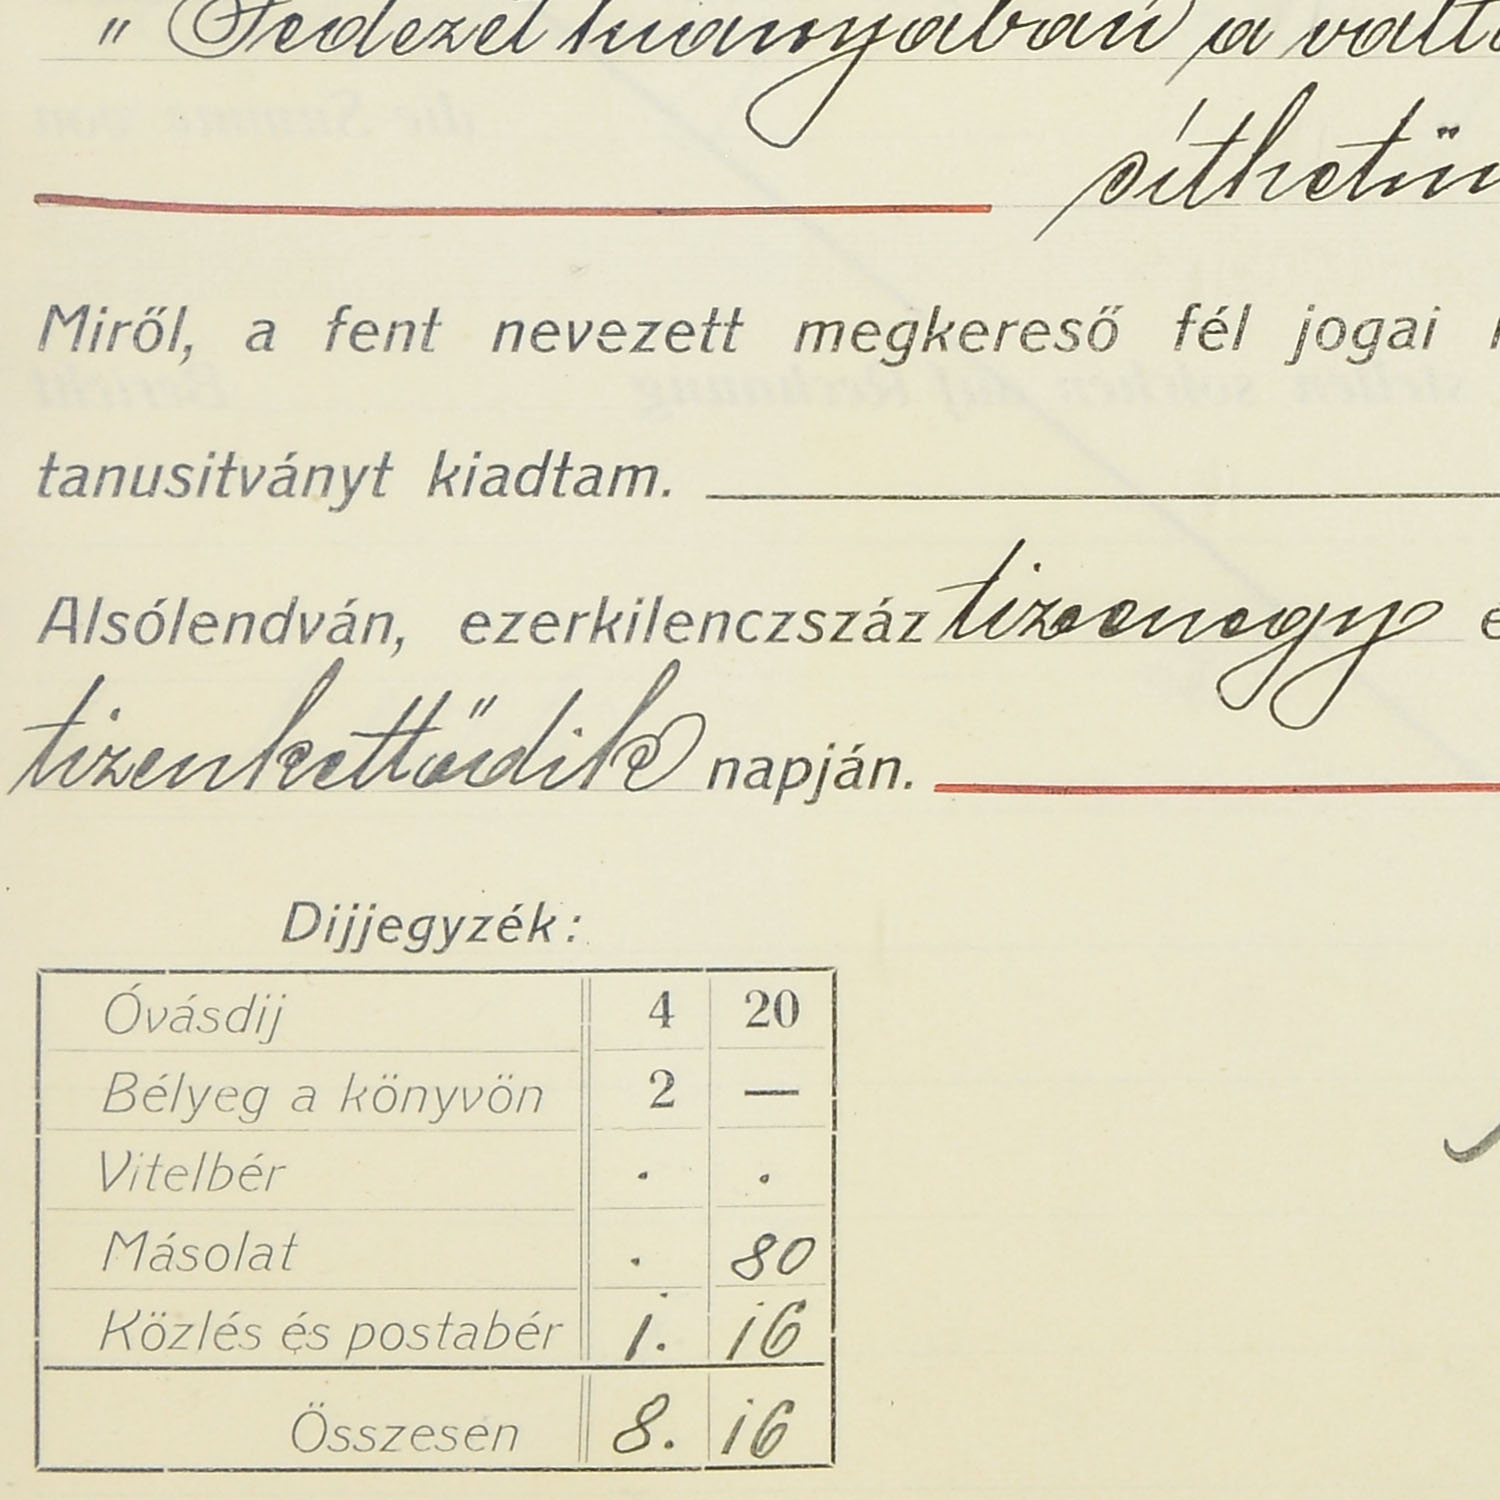 " Fedezet hiányában a vált
síthetün
Miről, a fent nevezett megkereső fél jogai
tanusitványt kiadtam.
Alsólendván, ezerkilenczszáz tizenegy e
tizenkettődik napján.
Dijjegyzék:
Óvásdij 4 20
Bélyeg a könyvön 2 —
Vitelbér . .
Másolat . 80
Közlés és postabér 1. 16
Összesen 8. 16